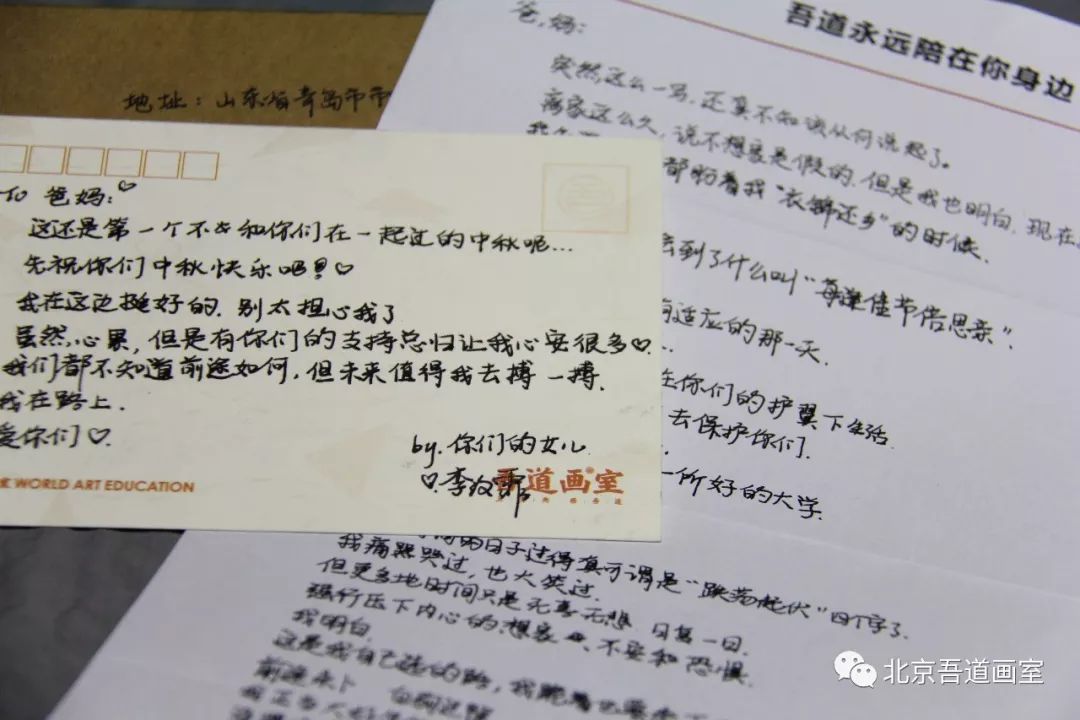 地址：山东省青岛市市
To 爸妈：♡
这还是第一个不能和你们在一起过的中秋呢...
先祝你们中秋快乐吧！♡
我在这边挺好的，别太担心我了
虽然心累，但是有你们的支持总归让我心安很多♡.
我们都不知道前途如何，但未来值得我去搏一搏.
我在路上.
爱你们♡.
by.你们的女儿
♡.李
吾道画室
WORLD ART EDUCATION
吾道永远陪在你身边
爸，妈：
突然这么一写，还真不知该从何说起了。
离家这么久，说不想家是假的，但是我也明白，现在
都盼着我“衣锦还乡”的时候.
会到了什么叫“每逢佳节倍思亲”.
适应的那一天.
在你们的护翼下生活.
去保护你们.
一所好的大学.
的日子过得真可谓是“跌荡起伏”四个字了.
我痛哭过，也大笑过.
但更多地时间只是无喜无悲，日复一日.
强行压下内心的想家、不安和恐惧.
我明白.
这是我自己选的路，我
北京吾道画室